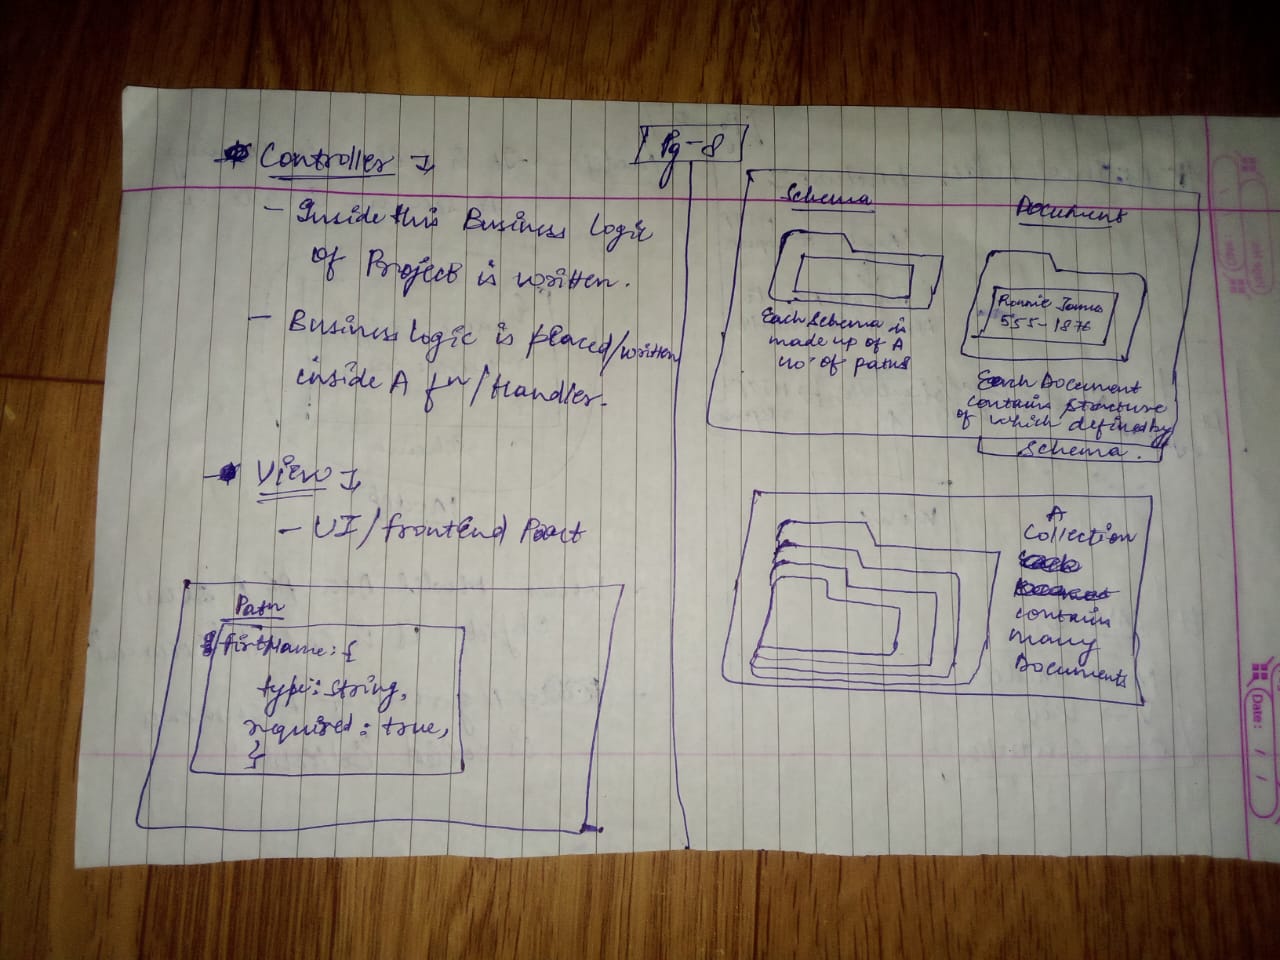 Pg-8
* Controller →
- Inside this Business Logic
of Project is written.
- Business Logic is placed/written
inside A fn/Handler.
* View →
- UI/frontend Part
Path
firstName: {
type: string,
required: true,
}
Schema
Each Schema is
made up of A
no. of paths
Document
Ronnie James
555-1876
Each Document
contain structure
of which defined by
Schema.
A
Collection
contain
many
Documents
Date: / /